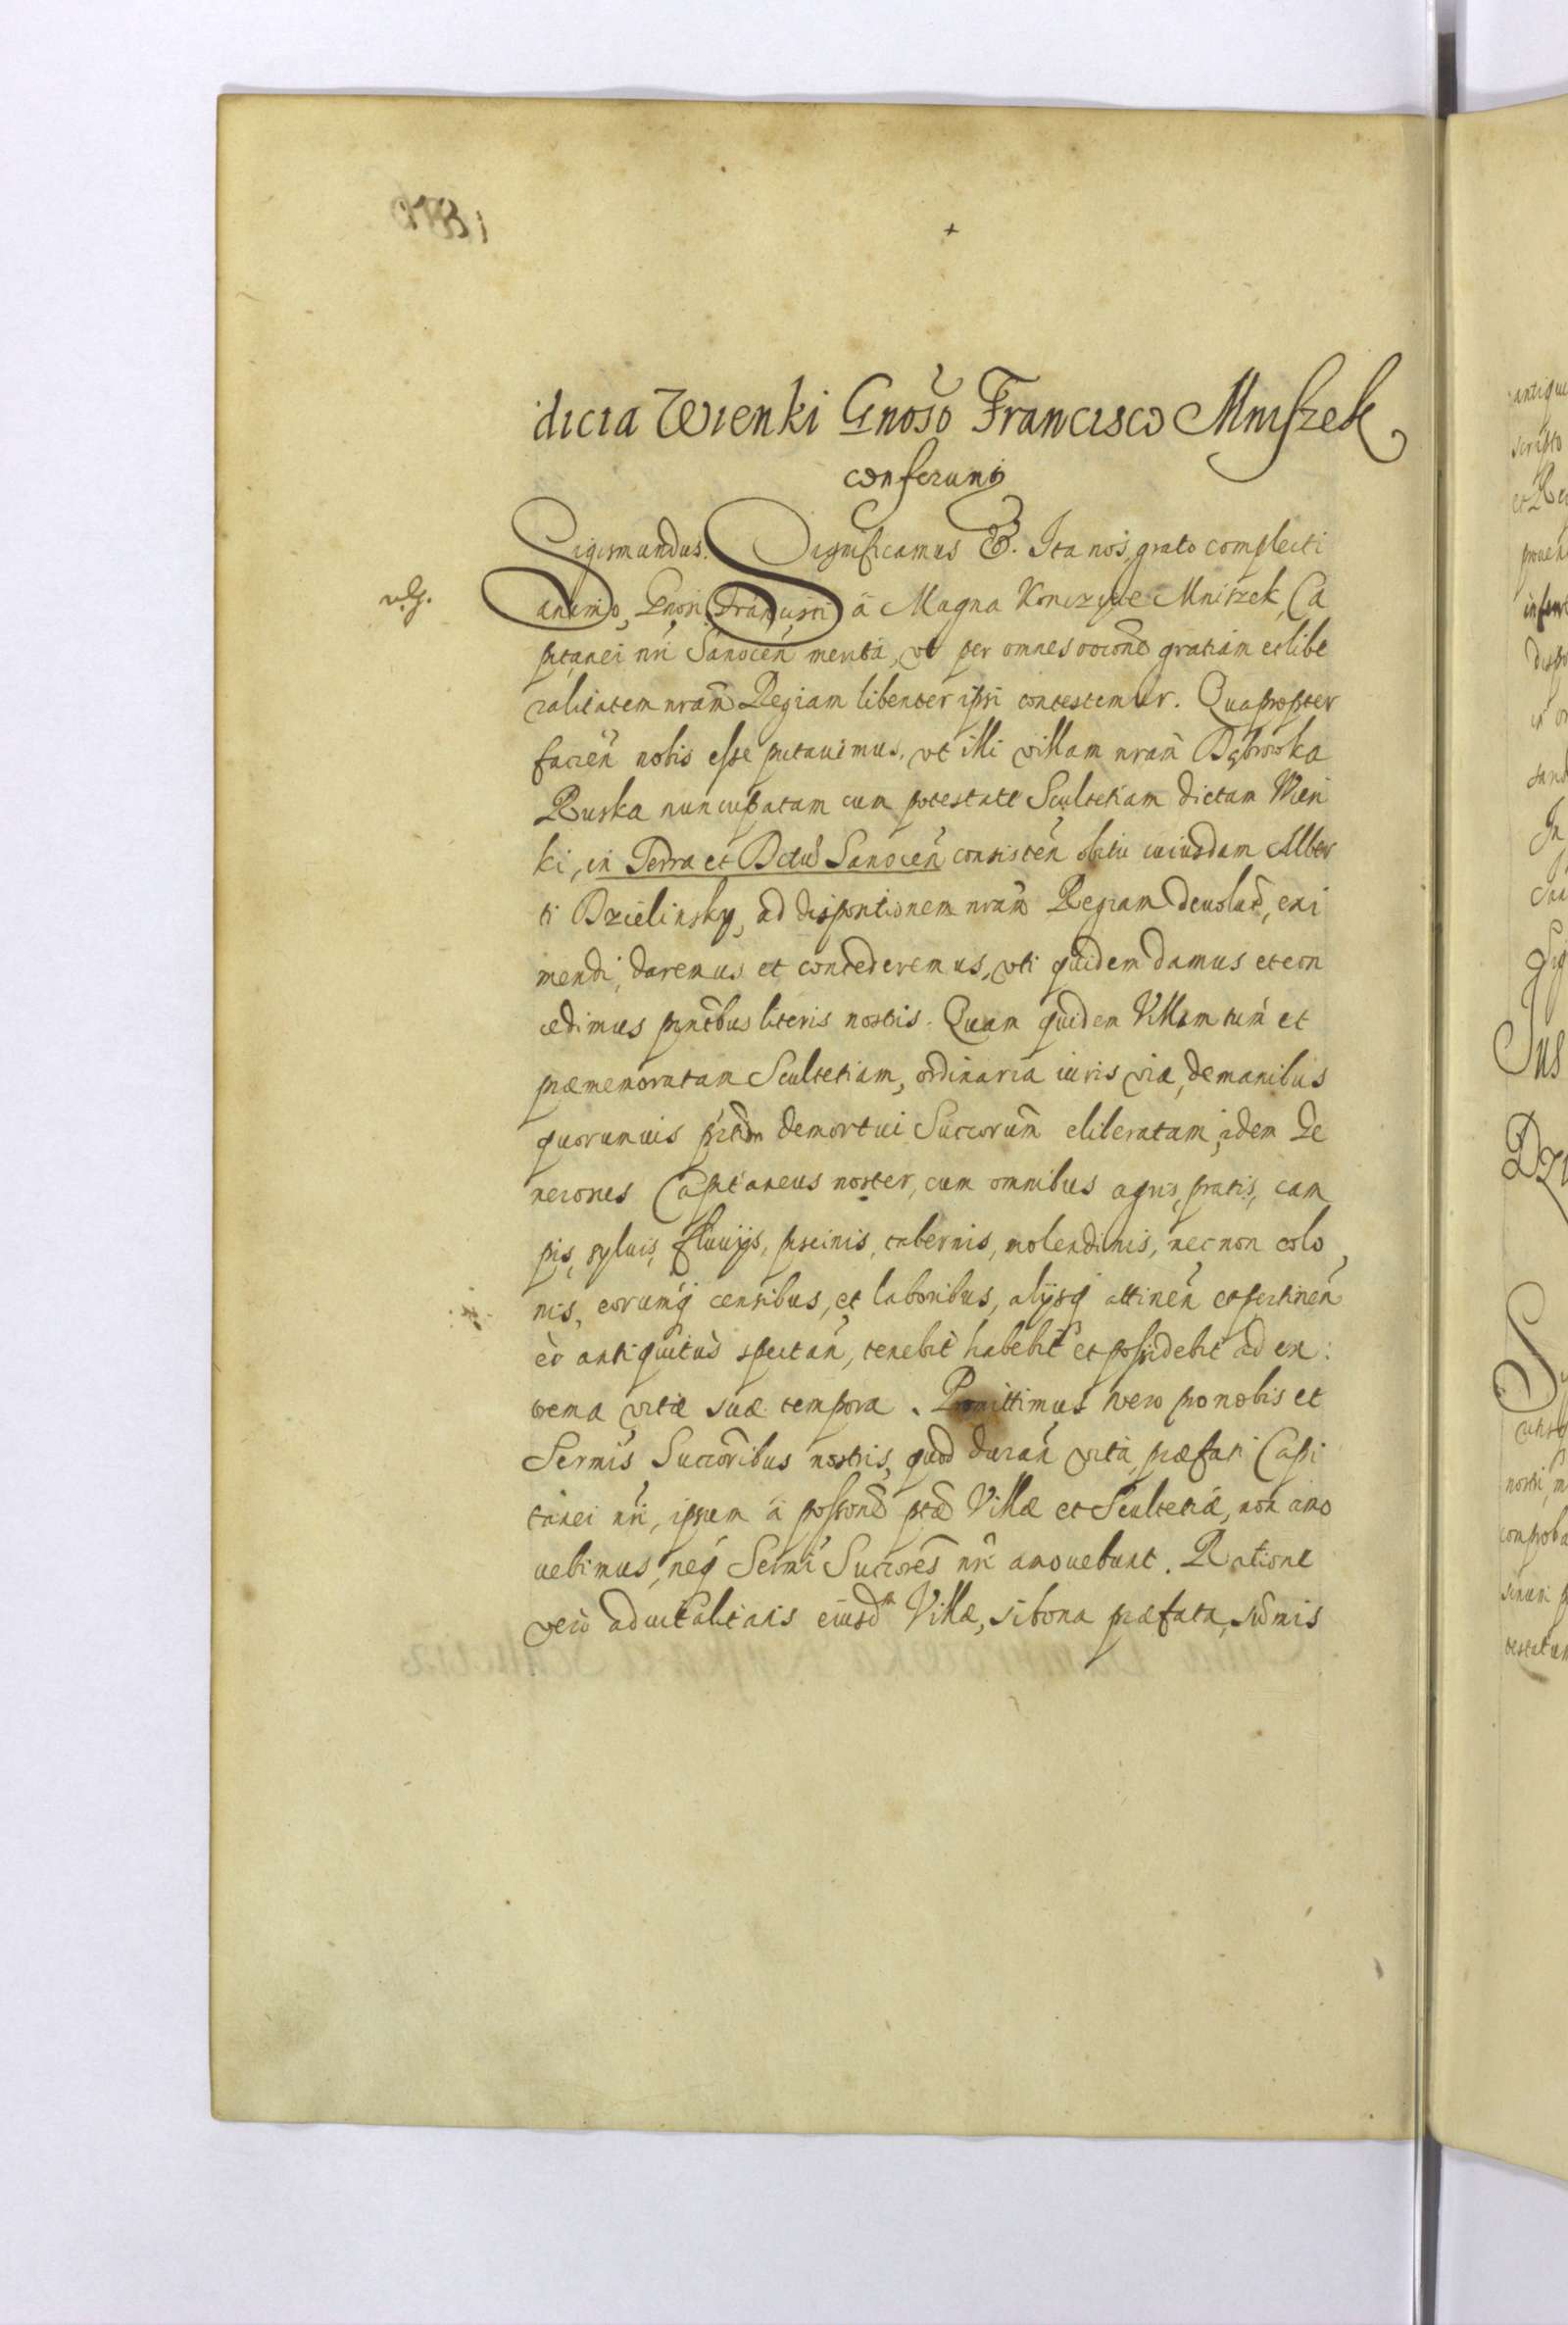 dicia Wienki Gnoso Francisco Mniszek
conferunt
Sigismundus. Significamus &. Ita nos, grato complecti
animo, Gnosi Francisci à Magna Konczyce Mniszek, Ca
pitanei nri Sanocen merita, ut per omnes occone gratiam et libe
ralitatem nram Regiam libenter ipsi contestemur. Quapropter
facien nobis esse putavimus, ut illi villam nram Dąbrowka
Ruska nuncupatam cum potestate Scultetiam dictam Wien
ki, in Terra et Dctu Sanocen consisten obitu cuiusdam Alber
ti Dzielinsky, ad dispositionem nram Regiam devolut, exi
mendi, daremus et concederemus, uti quidem damus et con
cedimus pntibus literis nostris. Quam quidem Villam tum et
præmemoratam Scultetiam, ordinaria iuris via, de manibus
quorumuis demortui Succorum eliberatam, idem Ge
nerosus Capitaneus noster, cum omnibus agris, pratis, cam
pis, syluis, fluuijs, piscinis, tabernis, molendinis, nec non colo
nis, eorumq censibus, et laboribus, alijsq attinen et pertinen
eò antiquitùs spectan, tenebit habebit et possidebit ad ex:
trema vitæ suæ tempora. Promittimus vero pro nobis et
Sermis Succoribus nostris, quod duran vita, præfati Capi
tanei nri, ipsum à possone ptæ Villæ et Scultetiæ, non amo
uebimus, neq Sermi Succores nri amouebunt. Ratione
verò aduitalitatis eiusdm Villæ, si bona præfata, sumis